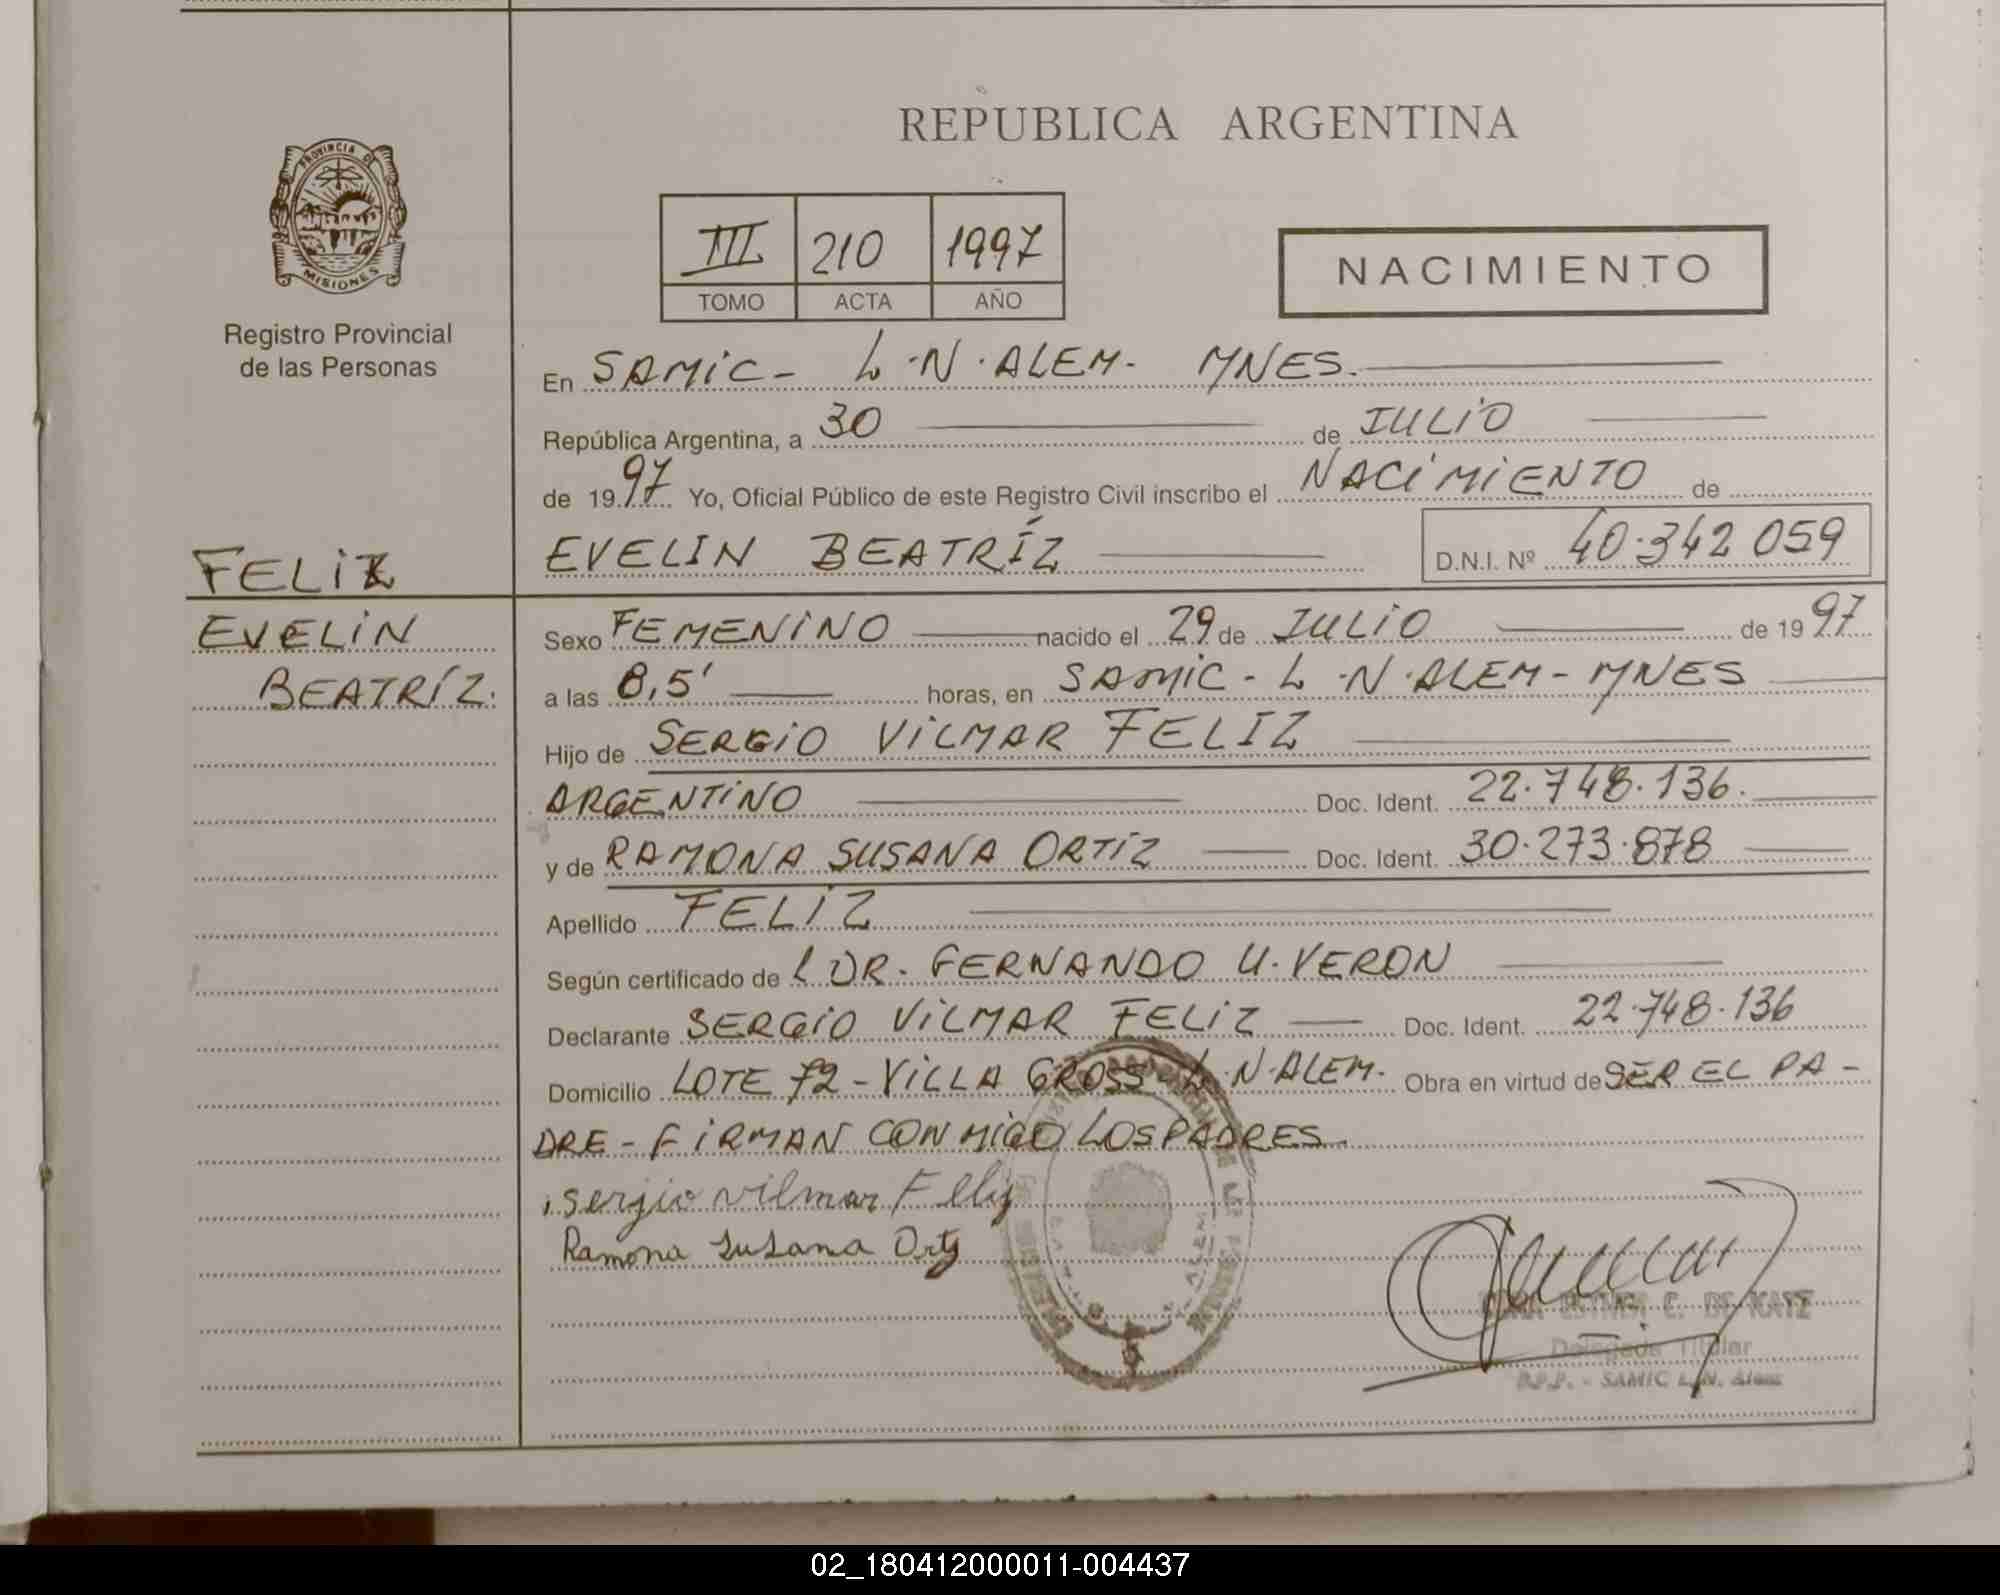 REPUBLICA ARGENTINA
PROVINCIA DE
MISIONES
Registro Provincial
de las Personas
III 210 1997
TOMO ACTA AÑO
NACIMIENTO
En SAMIC - L.N. ALEM - MNES.
República Argentina, a 30 de JULIO
de 1997 Yo, Oficial Público de este Registro Civil inscribo el NACIMIENTO de
EVELIN BEATRÍZ D.N.I. Nº 40.342 059
FELIZ
EVELIN
BEATRÍZ.
Sexo FEMENINO nacido el 29 de JULIO de 1997
a las 8,5' horas, en SAMIC - L.N. ALEM - MNES
Hijo de SERGIO VILMAR FELIZ
ARGENTINO Doc. Ident. 22.748.136.
y de RAMONA SUSANA ORTIZ Doc. Ident. 30.273.878
Apellido FELIZ
Según certificado de DR. FERNANDO U. VERON
Declarante SERGIO VILMAR FELIZ Doc. Ident. 22.748.136
Domicilio LOTE 72 - VILLA GROSS - L.N. ALEM. Obra en virtud de SER EL PA -
DRE - FIRMAN CONMIGO LOS PADRES.
sergio vilmar Feliz
Ramona Susana Ortiz
ESTHER C. DE KATZ
Delegada Titular
R.P.P. - SAMIC L.N. Alem
02_180412000011-004437